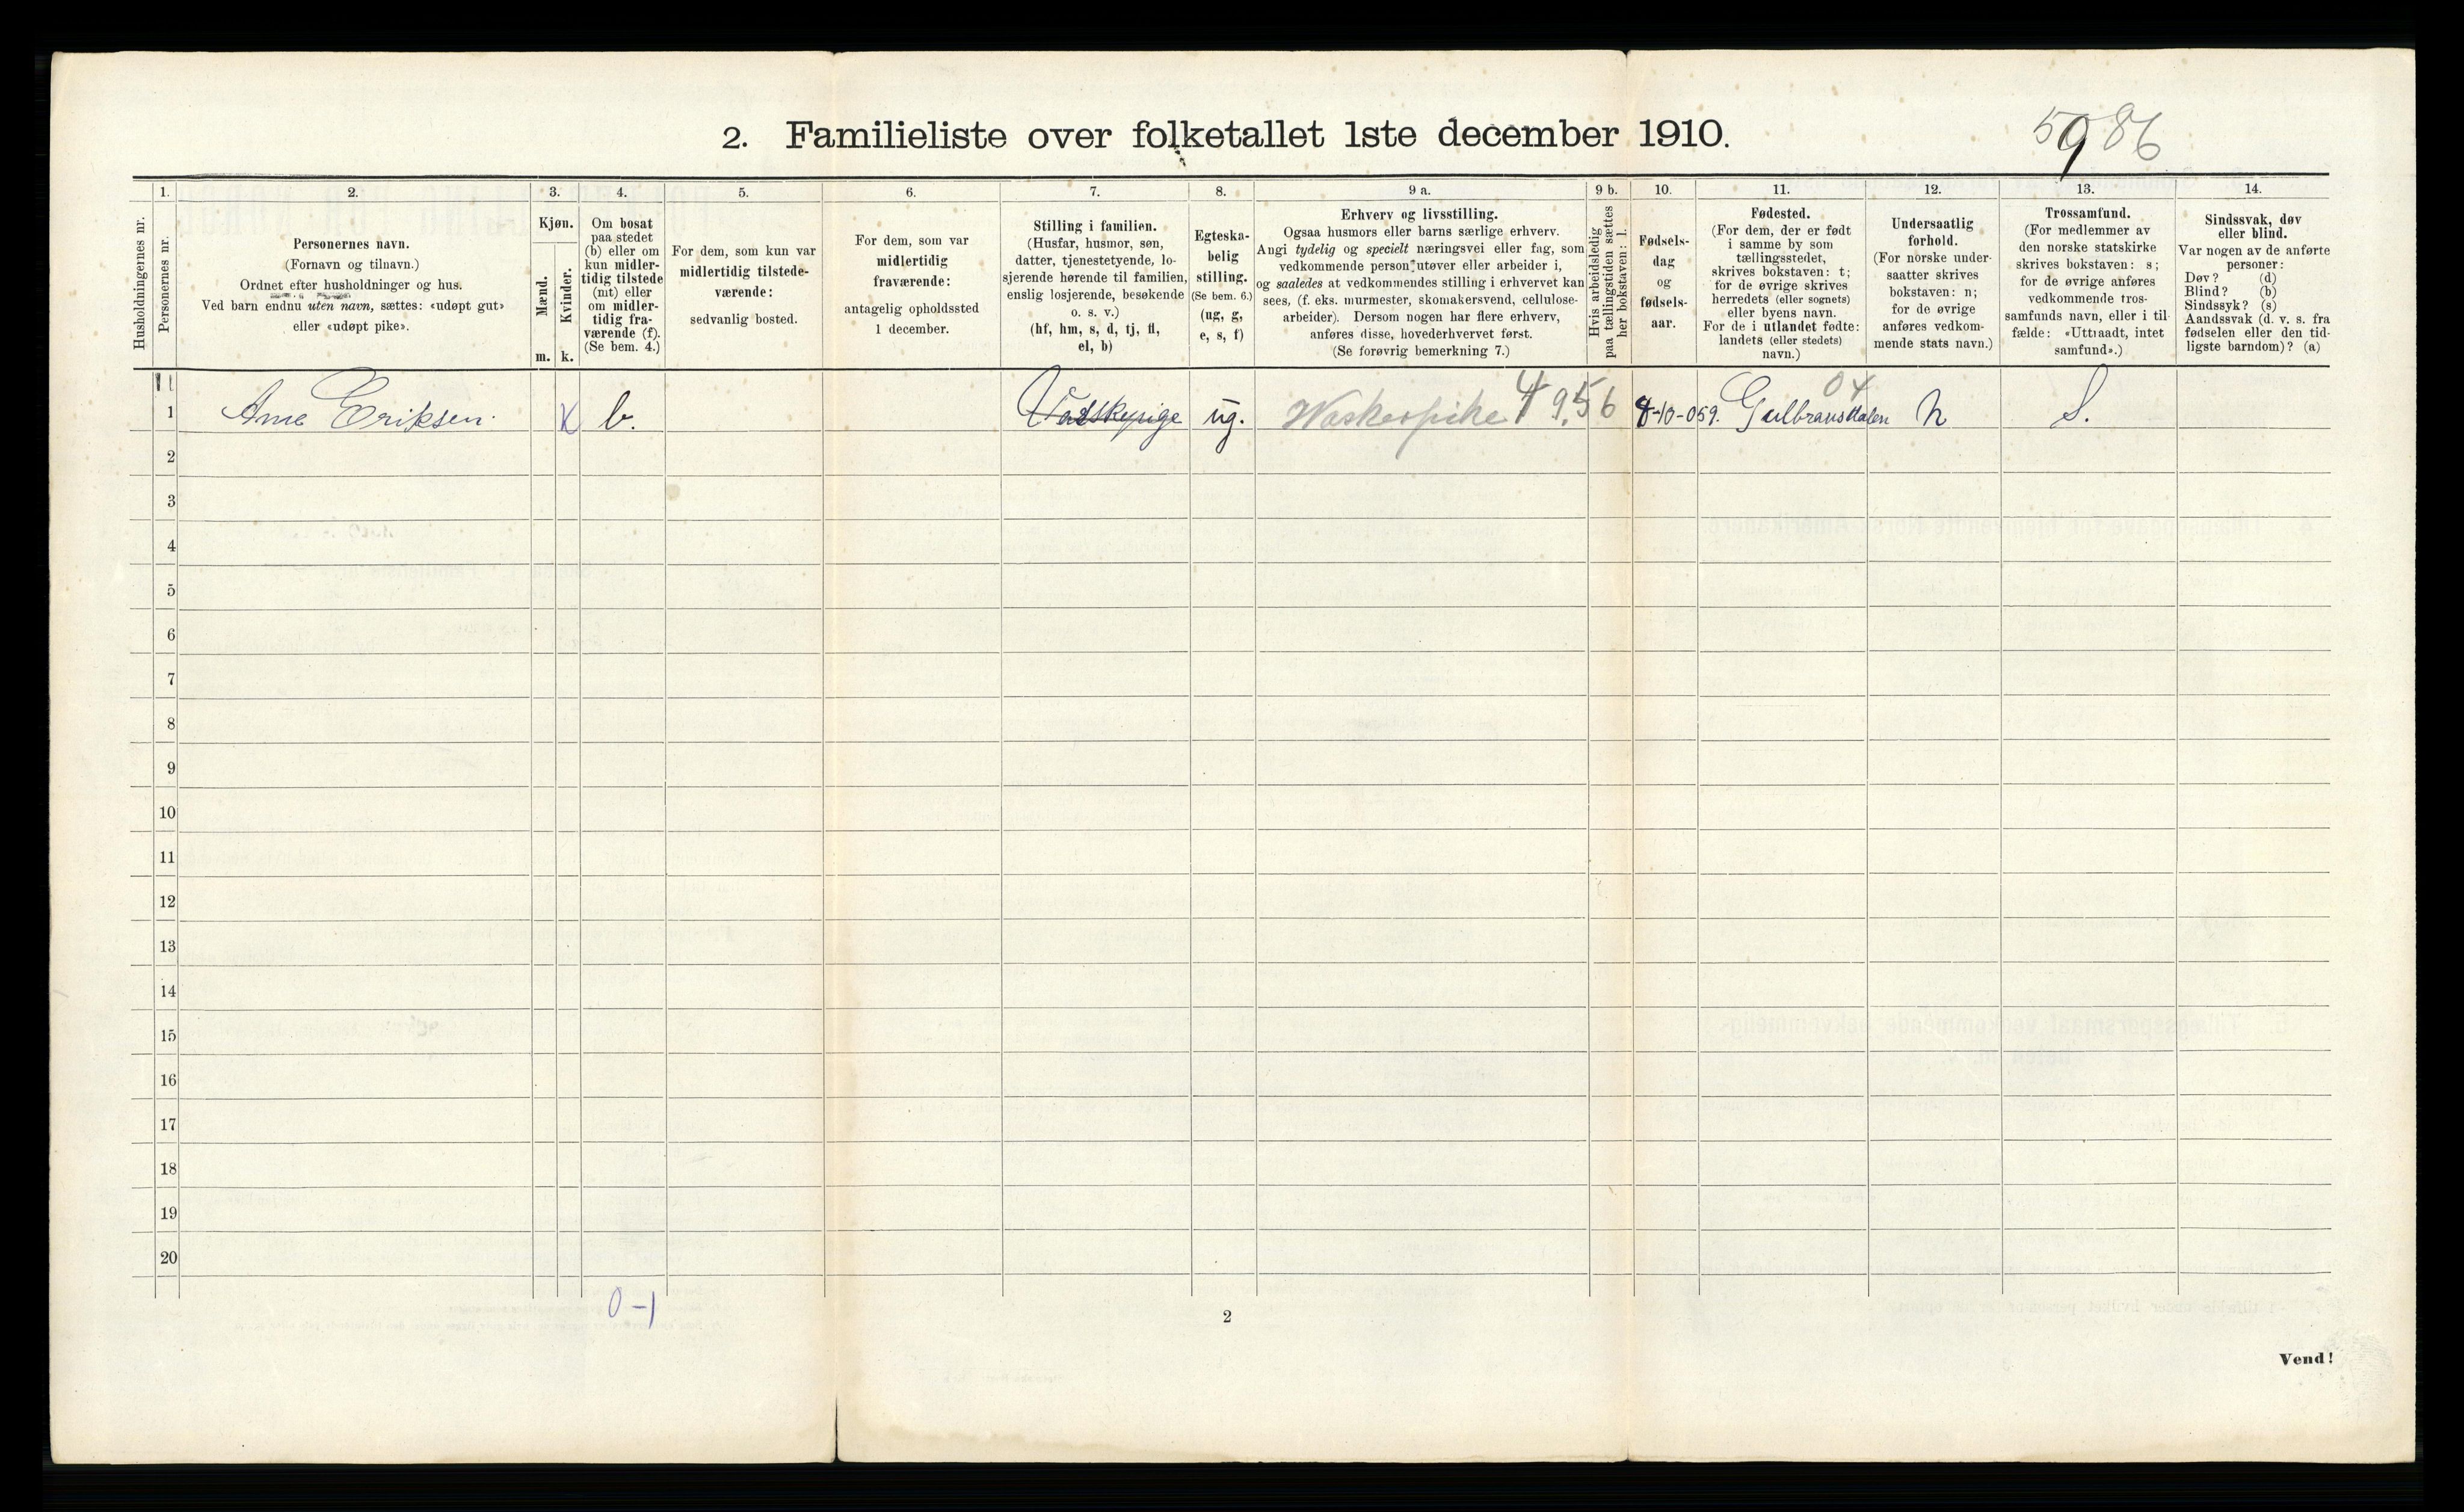 2. Familieliste over folketallet 1ste december 1910.
5986
1. 2. 3. 4. 5. 6. 7. 8. 9 a. 9 b. 10. 11. 12. 13. 14.
Husholdningernes nr.
Personernes nr.
Personernes navn.
(Fornavn og tilnavn.)
Ordnet efter husholdninger og hus.
Ved barn endnu uten navn, sættes: «udøpt gut»
eller «udøpt pike».
Kjøn.
Mænd.
Kvinder.
m. k.
Om bosat
paa stedet
(b) eller om
kun midler-
tidig tilstede
(mt) eller
om midler-
tidig fra-
værende (f).
(Se bem. 4.)
For dem, som kun var
midlertidig tilstede-
værende:
sedvanlig bosted.
For dem, som var
midlertidig
fraværende:
antagelig opholdssted
1 december.
Stilling i familien.
(Husfar, husmor, søn,
datter, tjenestetyende, lo-
sjerende hørende til familien,
enslig losjerende, besøkende
o. s. v.)
(hf, hm, s, d, tj, fl,
el, b)
Egteska-
belig
stilling.
(Se bem. 6.)
(ug, g,
e, s, f)
Erhverv og livsstilling.
Ogsaa husmors eller barns særlige erhverv.
Angi tydelig og specielt næringsvei eller fag, som
vedkommende person utøver eller arbeider i,
og saaledes at vedkommendes stilling i erhvervet kan
sees, (f. eks. murmester, skomakersvend, cellulose-
arbeider). Dersom nogen har flere erhverv,
anføres disse, hovederhvervet først.
(Se forøvrig bemerkning 7.)
Hvis arbeidsledig
paa tællingstiden sættes
her bokstaven: l.
Fødsels-
dag
og
fødsels-
aar.
Fødested.
(For dem, der er født
i samme by som
tællingsstedet,
skrives bokstaven: t;
for de øvrige skrives
herredets (eller sognets)
eller byens navn.
For de i utlandet fødte:
landets (eller stedets)
navn.)
Undersaatlig
forhold.
(For norske under-
saatter skrives
bokstaven: n;
for de øvrige
anføres vedkom-
mende stats navn.)
Trossamfund.
(For medlemmer av
den norske statskirke
skrives bokstaven: s;
for de øvrige anføres
vedkommende tros-
samfunds navn, eller i til-
fælde: «Uttraadt, intet
samfund».)
Sindssvak, døv
eller blind.
Var nogen av de anførte
personer:
Døv? (d)
Blind? (b)
Sindssyk? (s)
Aandssvak (d. v. s. fra
fødselen eller den tid-
ligste barndom)? (a)
1 Ane Eriksen. X b. ug. Waskerpike 4956 8-10-059. Gulbransdalen 04 n S.
2
3
4
5
6
7
8
9
10
11
12
13
14
15
16
17
18
19
20
0-1
2
Vend!